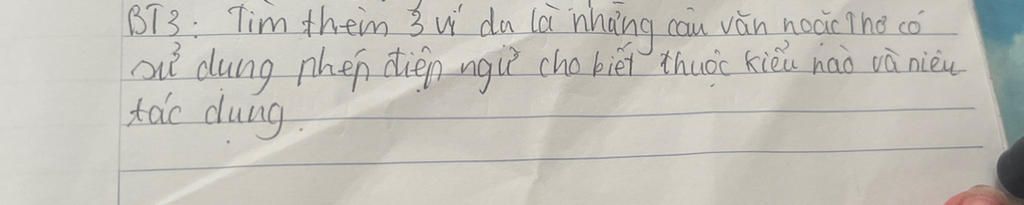 BT3: Tìm thêm 3 ví dụ là những câu văn hoặc thơ có
sử dụng phép điệp ngữ cho biết thuộc kiểu nào và nêu
tác dụng.